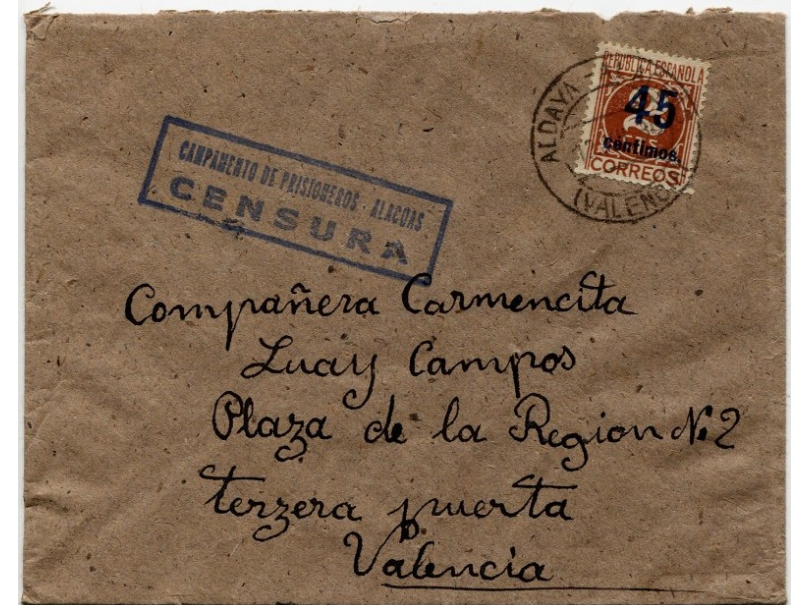 REPUBLICA ESPAÑOLA
45
centimos
CORREOS
ALDAYA
(VALENC
CAMPAMENTO DE PRISIONEROS - ALACUAS
CENSURA
Compañera Carmencita
Luay Campos
Plaza de la Region Nº 2
terzera puerta
Valencia